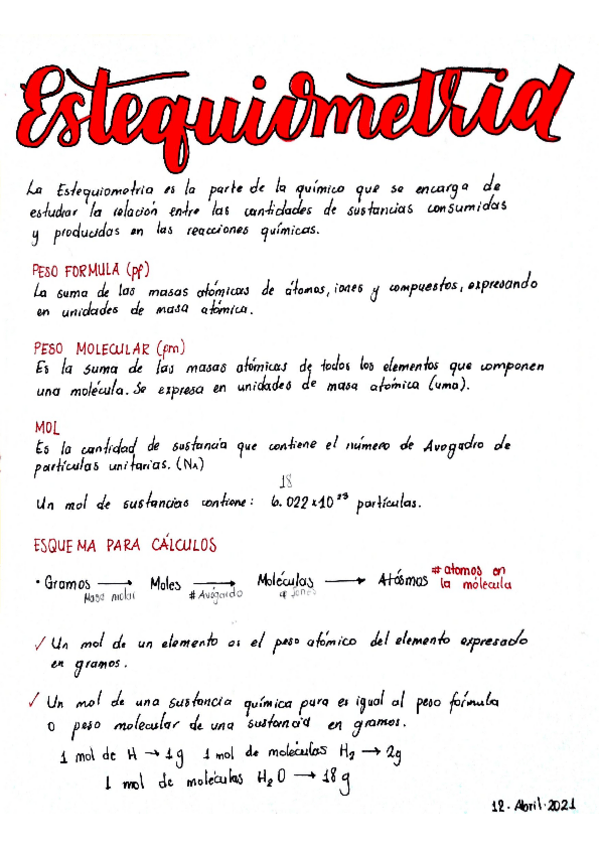 Estequiometria
La Estequiometria es la parte de la química que se encarga de
estudiar la relación entre las cantidades de sustancias consumidas
y producidas en las reacciones químicas.
PESO FORMULA (pf)
La suma de las masas atómicas de átomos, iones y compuestos, expresando
en unidades de masa atómica.
PESO MOLECULAR (pm)
Es la suma de las masas atómicas de todos los elementos que componen
una molécula. Se expresa en unidades de masa atómica (uma).
MOL
Es la cantidad de sustancia que contiene el número de Avogadro de
partículas unitarias. (NA)
18
Un mol de sustancias contiene: 6.022x10²³ partículas.
ESQUEMA PARA CÁLCULOS
• Gramos → Moles → Moléculas → Atósmos # atomos en
Masa molar # Avogardo la molécula
✓ Un mol de un elemento es el peso atómico del elemento expresado
en gramos.
✓ Un mol de una sustancia química pura es igual al peso fórmula
o peso molecular de una sustancia en gramos.
1 mol de H → 1g 1 mol de moléculas H₂ → 2g
1 mol de moléculas H₂O → 18g
12. Abril. 2021